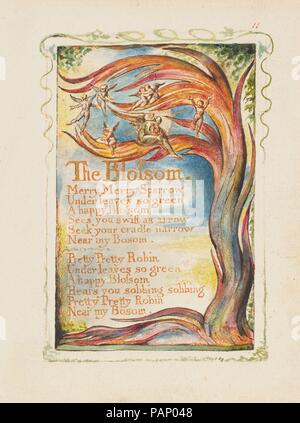 11
The Blossom.
Merry Merry Sparrow
Under leaves so green
A happy Blossom
Sees you swift as arrow
Seek your cradle narrow
Near my Bosom.
Pretty Pretty Robin
Under leaves so green
A happy Blossom
Hears you sobbing sobbing
Pretty Pretty Robin
Near my Bosom.
alamy
Image ID: PAP048
www.alamy.com